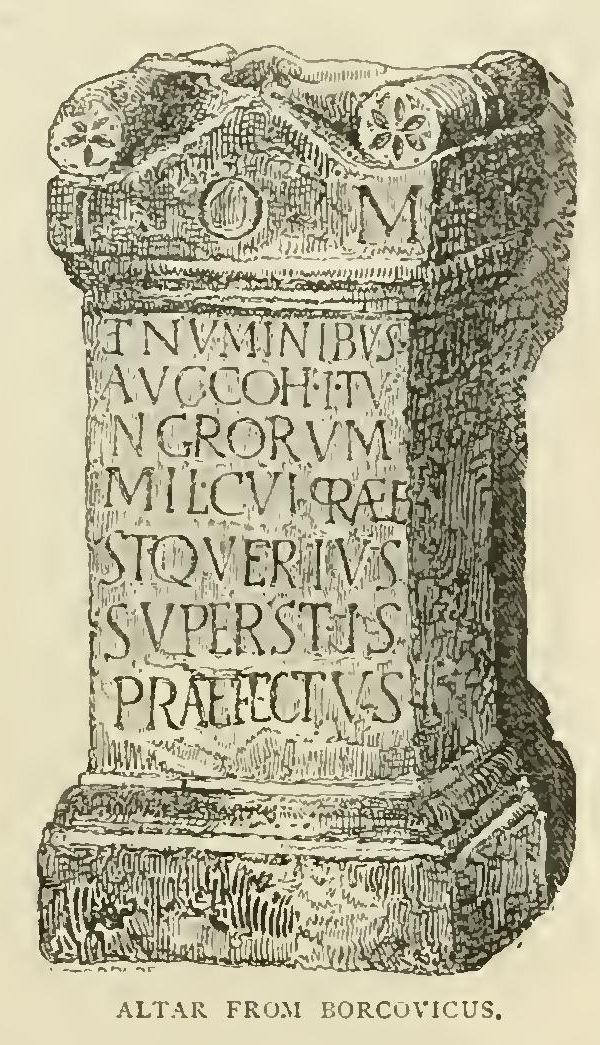 I O M
ET NVMINIBVS
AVG COH·I·TV
NGRORVM
MIL·CVI·PRÆE
ST Q VERIVS
SVPERSTIS
PRÆFECTVS
ALTAR FROM BORCOVICUS.